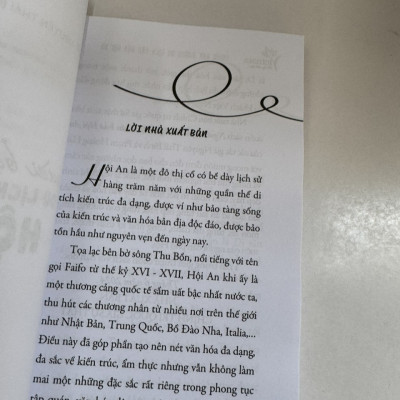 LỜI NHÀ XUẤT BẢN
Hội An là một đô thị cổ có bề dày lịch sử
hàng trăm năm với những quần thể di
tích kiến trúc đa dạng, được ví như bảo tàng sống
của kiến trúc và văn hóa bản địa độc đáo, được bảo
tồn hầu như nguyên vẹn đến ngày nay.
Tọa lạc bên bờ sông Thu Bồn, nổi tiếng với tên
gọi Faifo từ thế kỷ XVI - XVII, Hội An khi ấy là
một thương cảng quốc tế sầm uất bậc nhất nước ta,
thu hút các thương nhân từ nhiều nơi trên thế giới
như Nhật Bản, Trung Quốc, Bồ Đào Nha, Italia,...
Điều này đã góp phần tạo nên nét văn hóa đa dạng,
đa sắc về kiến trúc, ẩm thực nhưng vẫn không làm
mai một những đặc sắc rất riêng trong phong tục